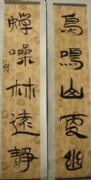 鳥鳴山更幽
蟬噪林逾靜